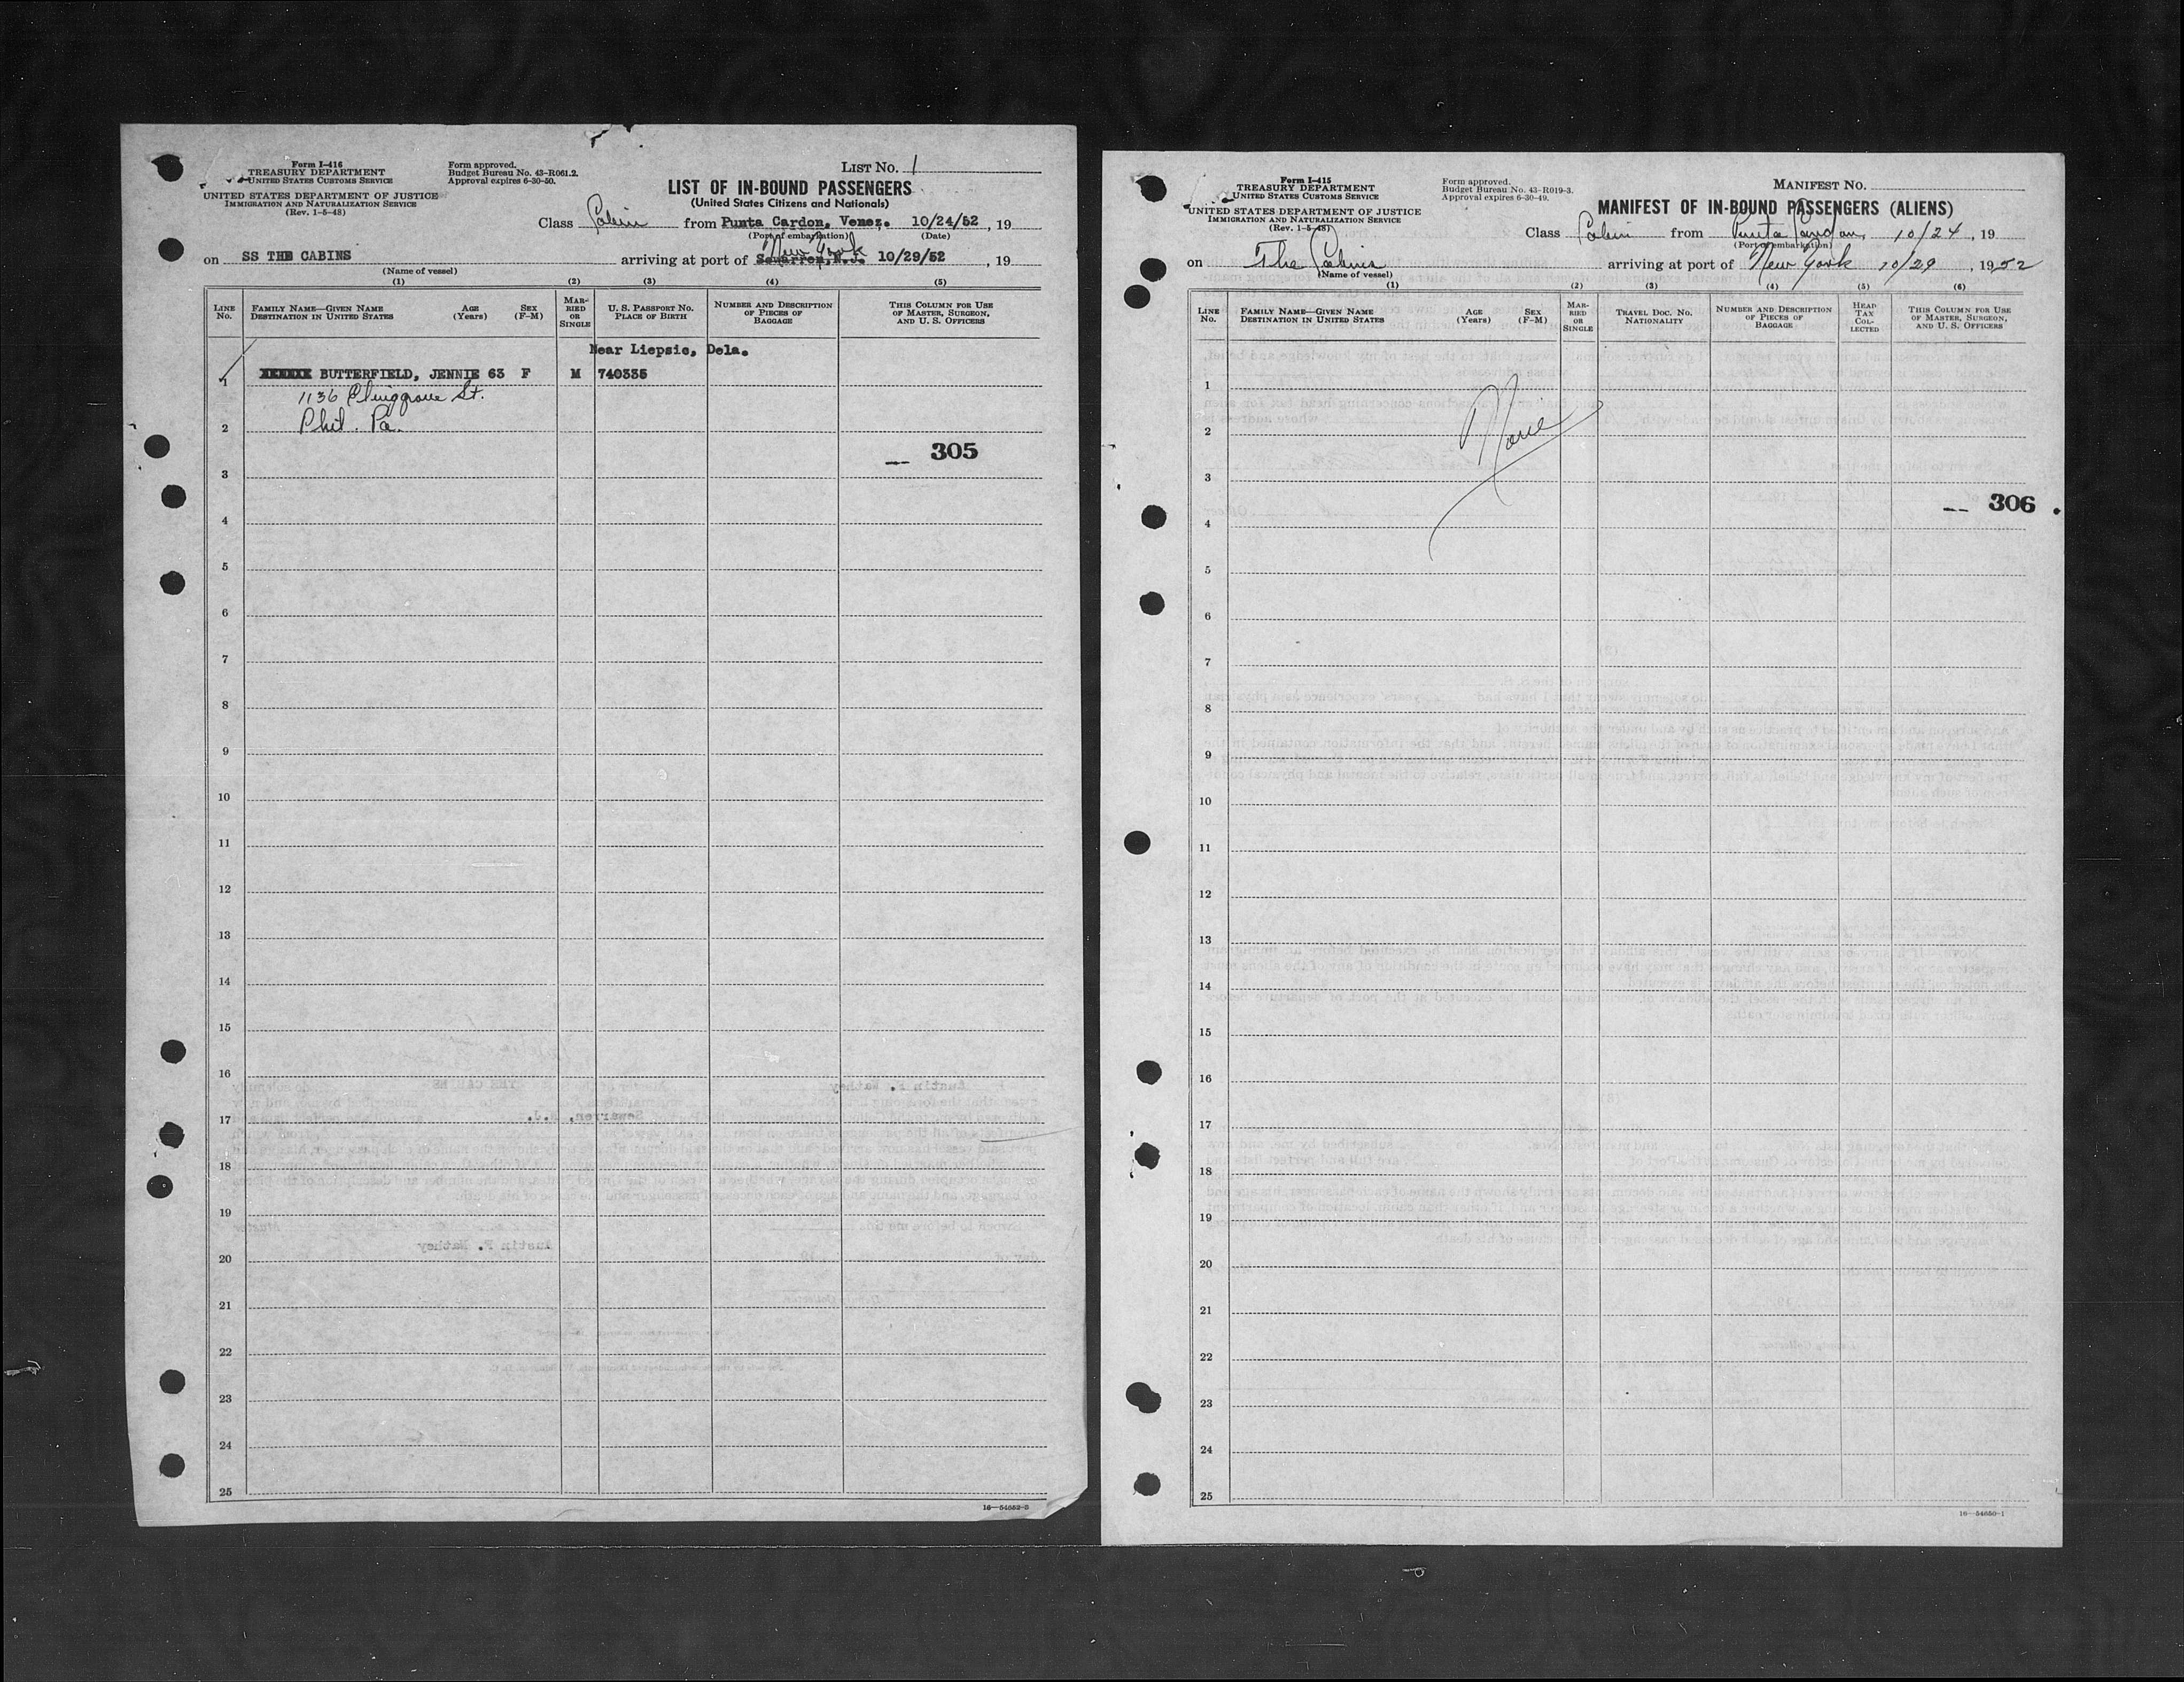 Form I-416
TREASURY DEPARTMENT
UNITED STATES CUSTOMS SERVICE
UNITED STATES DEPARTMENT OF JUSTICE
IMMIGRATION AND NATURALIZATION SERVICE
(Rev. 1-5-48)
Form approved.
Budget Bureau No. 43-R061.2.
Approval expires 6-30-50.
LIST No. 1
LIST OF IN-BOUND PASSENGERS
(United States Citizens and Nationals)
Class Cabin from Punta Cardon, Venez. 10/24/52, 19
(Port of embarkation) (Date)
New York
on SS THE CABINS arriving at port of Sewarren, N.J. 10/29/52, 19
(Name of vessel)
(1) (2) (3) (4) (5)
LINE No. FAMILY NAME—GIVEN NAME DESTINATION IN UNITED STATES AGE (Years) SEX (F-M) MARRIED OR SINGLE U. S. PASSPORT No. PLACE OF BIRTH NUMBER AND DESCRIPTION OF PIECES OF BAGGAGE THIS COLUMN FOR USE OF MASTER, SURGEON, AND U. S. OFFICERS
Near Liepsic, Dela.
1 XXXXXX BUTTERFIELD, JENNIE 63 F M 740335
1136 St.
2 Phil. Pa.
305
3
4
5
6
7
8
9
10
11
12
13
14
15
16
17
18
19
20
21
22
23
24
25
16—54652-3
Form I-415
TREASURY DEPARTMENT
UNITED STATES CUSTOMS SERVICE
UNITED STATES DEPARTMENT OF JUSTICE
IMMIGRATION AND NATURALIZATION SERVICE
(Rev. 1-5-48)
Form approved.
Budget Bureau No. 43-R019-3.
Approval expires 6-30-49.
MANIFEST No.
MANIFEST OF IN-BOUND PASSENGERS (ALIENS)
Class Cabin from Punta Cardon, 10/24, 19
(Port of embarkation)
on The Cabins arriving at port of New York 10/29, 1952
(Name of vessel)
(1) (2) (3) (4) (5) (6)
LINE No. FAMILY NAME—GIVEN NAME DESTINATION IN UNITED STATES AGE (Years) SEX (F-M) MARRIED OR SINGLE TRAVEL DOC. No. NATIONALITY NUMBER AND DESCRIPTION OF PIECES OF BAGGAGE HEAD TAX COLLECTED THIS COLUMN FOR USE OF MASTER, SURGEON, AND U. S. OFFICERS
1
None
2
3
306
4
5
6
7
8
9
10
11
12
13
14
15
16
17
18
19
20
21
22
23
24
25
16—54650-1